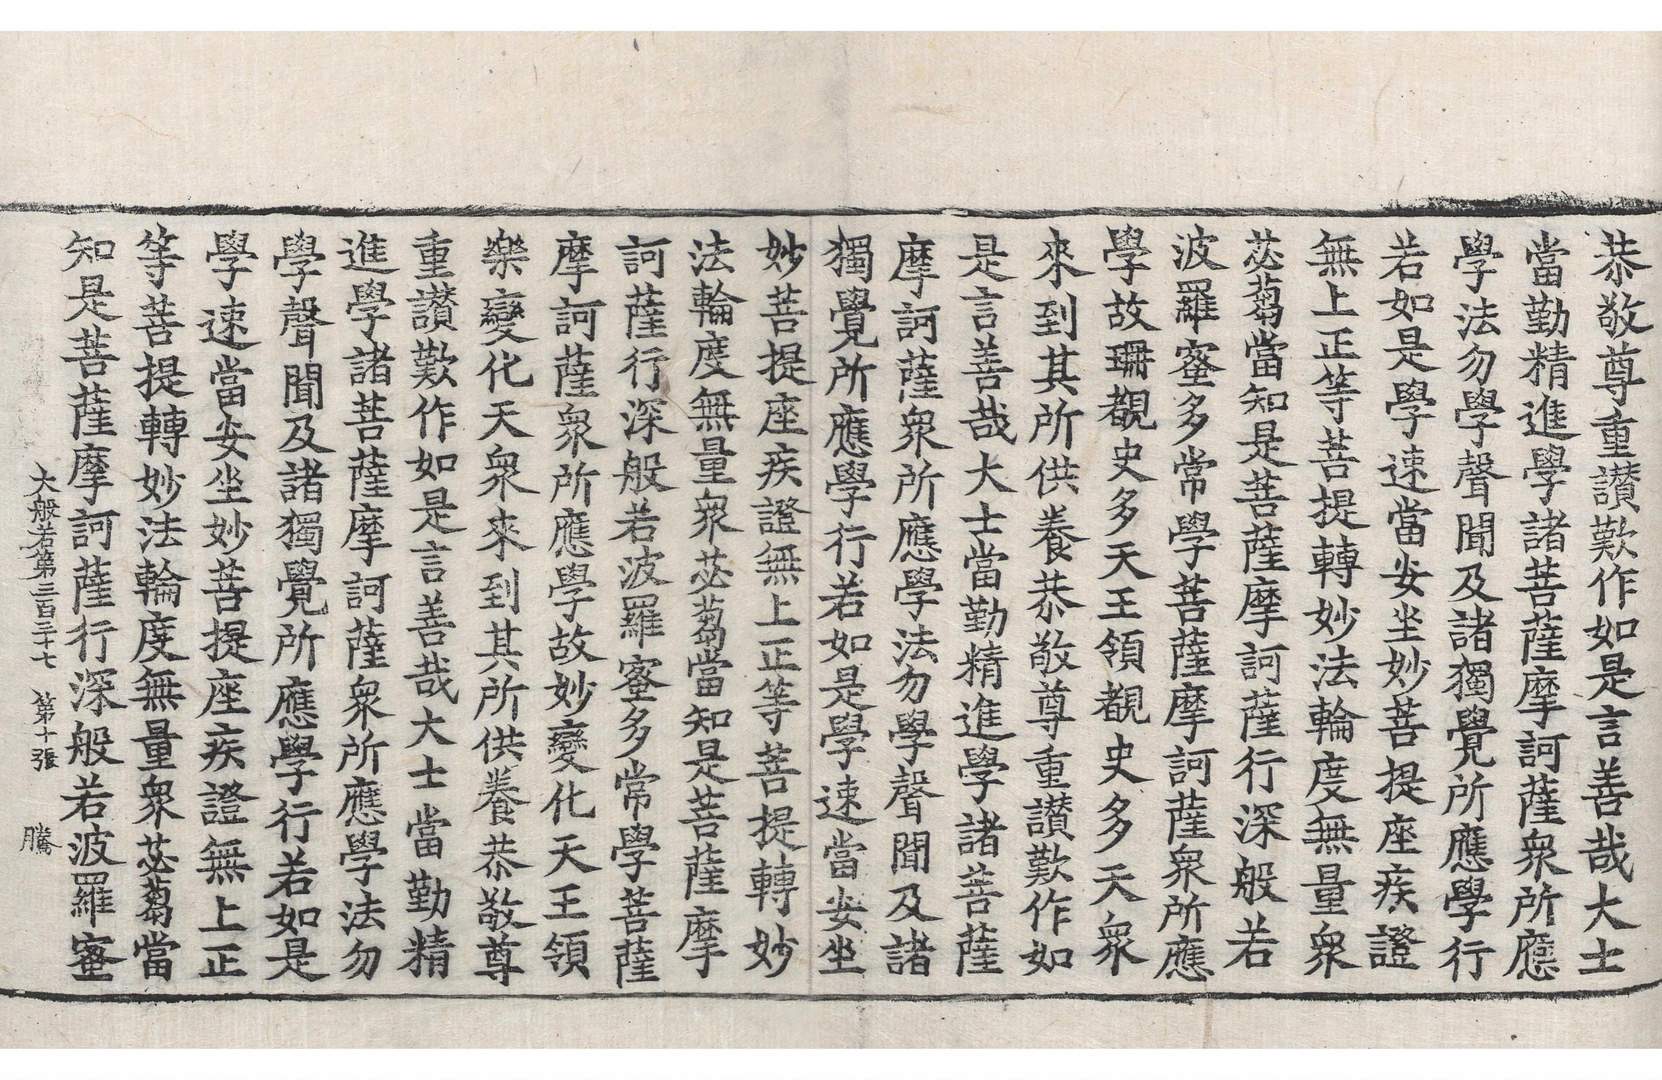 恭敬尊重讃歎作如是言善哉大士
當勤精進學諸菩薩摩訶薩衆所應
學法勿學聲聞及諸獨覺所應學行
若如是學速當安坐妙菩提座疾證
無上正等菩提轉妙法輪度無量衆
苾蒭當知是菩薩摩訶薩行深般若
波羅蜜多常學菩薩摩訶薩衆所應
學故珊覩史多天王領覩史多天衆
來到其所供養恭敬尊重讃歎作如
是言善哉大士當勤精進學諸菩薩
摩訶薩衆所應學法勿學聲聞及諸
獨覺所應學行若如是學速當安坐
妙菩提座疾證無上正等菩提轉妙
法輪度無量衆苾蒭當知是菩薩摩
訶薩行深般若波羅蜜多常學菩薩
摩訶薩衆所應學故妙變化天王領
樂變化天衆來到其所供養恭敬尊
重讃歎作如是言善哉大士當勤精
進學諸菩薩摩訶薩衆所應學法勿
學聲聞及諸獨覺所應學行若如是
學速當安坐妙菩提座疾證無上正
等菩提轉妙法輪度無量衆苾蒭當
知是菩薩摩訶薩行深般若波羅蜜
大般若第三百三十七 第十張 騰